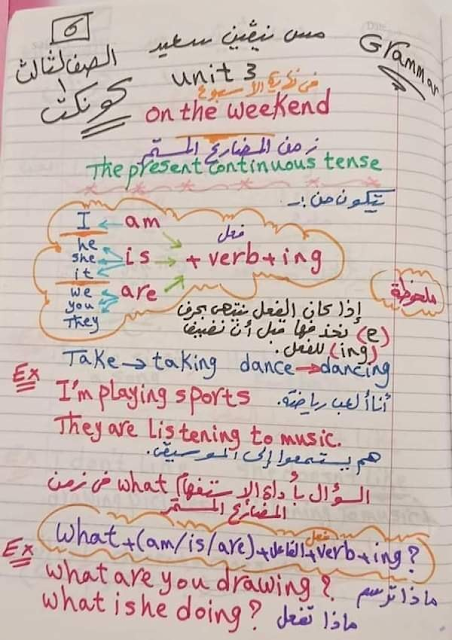 6
مس نيڤين سعيد
Grammar
الصف الثالث
كونكت ١
unit 3
في نهاية الاسبوع
on the weekend
زمن المضارع المستمر
The present continuous tense
يتكون من :-
I am
he
she is
it
we
you are
They
فعل
+ verb + ing
ملحوظة
إذا كان الفعل ينتهي بحرف
(e) نحذفها قبل أن نضيف
(ing) للفعل.
Take → taking dance → dancing
Ex
I'm playing sports أنا ألعب رياضة.
They are listening to music.
هم يستمعوا إلى الموسيقى.
السؤال بأداة الاستفهام what في زمن
المضارع المستمر
What + (am/is/are) + الفاعل + فعل verb + ing ?
Ex
what are you drawing? ماذا ترسم
what is he doing? ماذا تفعل